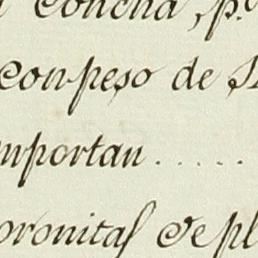 Concha, p.
con peso de
mportan.....
oronitas de pl